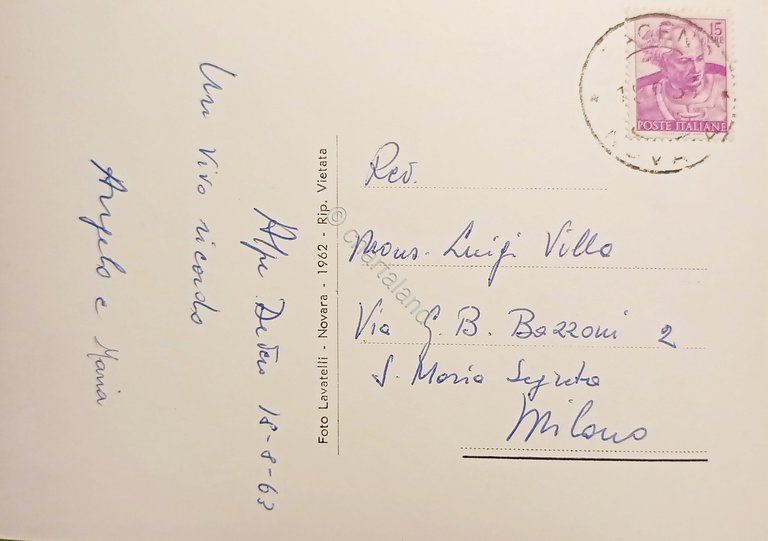 Alpe Devero 18-8-63
Un vivo ricordo
Angelo e Maria
Foto Lavatelli - Novara - 1962 - Rip. Vietata
© chartaland
15
LIRE
POSTE ITALIANE
Rev.
Mons. Luigi Villa
Via G. B. Bazzoni 2
S. Maria Segreta
Milano